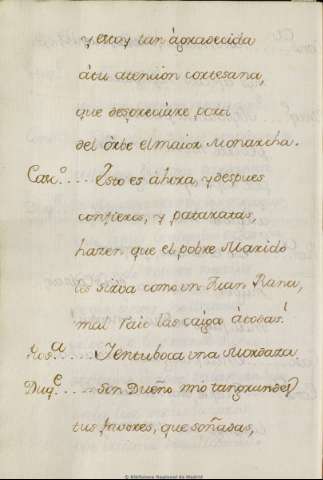 y estoy tan agradecida
átu atencion cortesana,
que despreciára por ti
del órbe el maior Monarcha.
Cau.º .... Ésto es áhora, y despues
confieros, y pataratas,
hazen que el pobre Marido
les sirva como un Juan Rana,
mal raio las caiga átodas!
Ros.a .... Ten tu boca una Mordaza
Duq.e .... Son Dueño mio tan grandes
tus favores, que soñadas,
© Biblioteca Nacional de Madrid